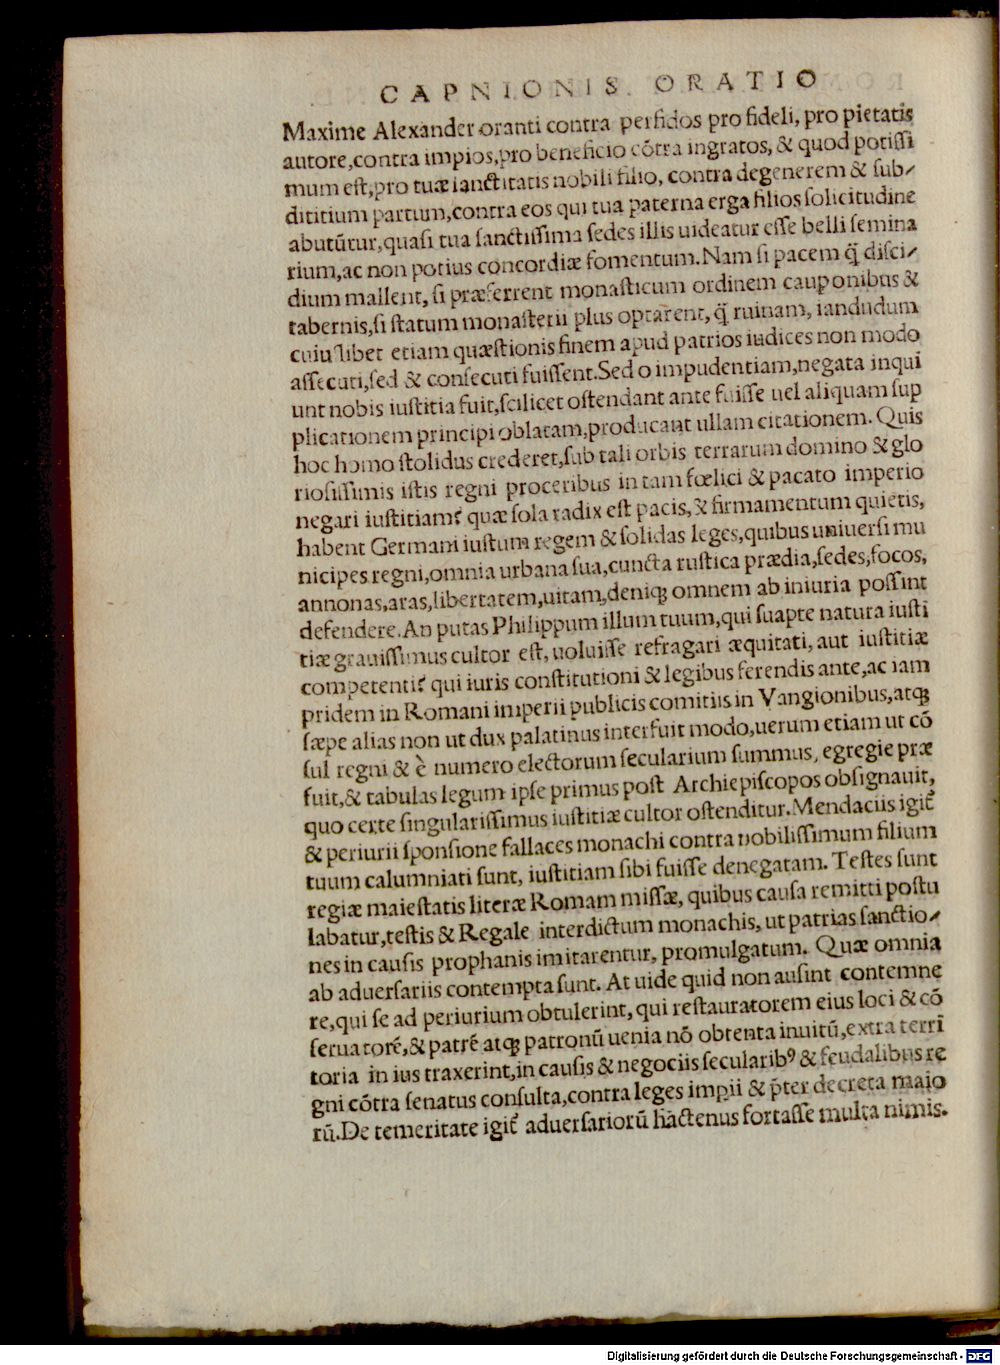 CAPNIONIS. ORATIO
Maxime Alexander oranti contra perfidos pro fideli, pro pietatis
autore,contra impios,pro beneficio cōtra ingratos, & quod potiſſi
mum eſt,pro tuæ ſanctitatis nobili filio, contra degenerem & ſub⸗
dititium partum,contra eos qui tua paterna erga filios ſolicitudine
abutūtur,quaſi tua ſanctiſſima ſedes illis uideatur eſſe belli ſemina
rium,ac non potius concordiæ fomentum.Nam ſi pacem q̃ diſci⸗
dium mallent, ſi præferrent monaſticum ordinem cauponibus &
tabernis,ſi ſtatum monaſterii plus optarent, q̃ ruinam, iandudum
cuiuſlibet etiam quæſtionis finem apud patrios iudices non modo
aſſecuti,ſed & conſecuti fuiſſent.Sed o impudentiam,negata inqui
unt nobis iuſtitia fuit,ſcilicet oſtendant ante fuiſſe uel aliquam ſup
plicationem principi oblatam,producant ullam citationem. Quis
hoc homo ſtolidus crederet,ſub tali orbis terrarum domino & glo
rioſiſſimis iſtis regni proceribus in tam fœlici & pacato imperio
negari iuſtitiam? quæ ſola radix eſt pacis, & firmamentum quietis,
habent Germani iuſtum regem & ſolidas leges,quibus uniuerſi mu
nicipes regni,omnia urbana ſua,cuncta ruſtica prædia,ſedes,focos,
annonas,aras,libertatem,uitam,deniqꝫ omnem ab iniuria poſſint
defendere.An putas Philippum illum tuum,qui ſuapte natura iuſti
tiæ grauiſſimus cultor eſt, uoluiſſe refragari æquitati, aut iuſtitiæ
competenti? qui iuris conſtitutioni & legibus ferendis ante,ac iam
pridem in Romani imperii publicis comitiis in Vangionibus,atqꝫ
ſæpe alias non ut dux palatinus interfuit modo,uerum etiam ut cō
ſul regni & è numero electorum ſecularium ſummus, egregie præ
fuit,& tabulas legum ipſe primus poſt Archiepiſcopos obſignauit,
quo certe ſingulariſſimus iuſtitiæ cultor oſtenditur.Mendaciis igit̃
& periurii ſponſione fallaces monachi contra nobiliſſimum filium
tuum calumniati ſunt, iuſtitiam ſibi fuiſſe denegatam. Teſtes ſunt
regiæ maieſtatis literæ Romam miſſæ, quibus cauſa remitti poſtu
labatur,teſtis & Regale interdictum monachis, ut patrias ſanctio⸗
nes in cauſis prophanis imitarentur, promulgatum. Quæ omnia
ab aduerſariis contempta ſunt. At uide quid non auſint contemne
re,qui ſe ad periurium obtulerint, qui reſtauratorem eius loci & cō
ſeruatorē,& patrē atqꝫ patronū uenia nō obtenta inuitū,extra terri
toria in ius traxerint,in cauſis & negociis ſecularibꝰ & feudalibus re
gni cōtra ſenatus conſulta,contra leges impii & p̃ter decreta maio
rū.De temeritate igit̃ aduerſariorū hactenus fortaſſe multa nimis.
Digitalisierung gefördert durch die Deutsche Forschungsgemeinschaft - DFG